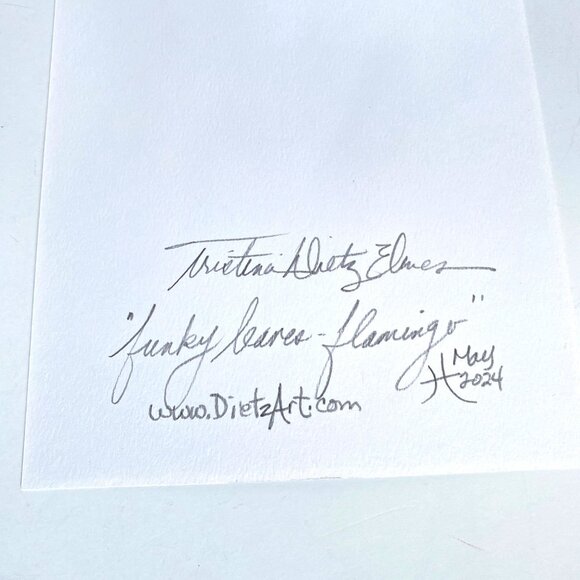 Tristina Dietz Elmes
"funky leaves - flamingo"
May
2024
www.DietzArt.com